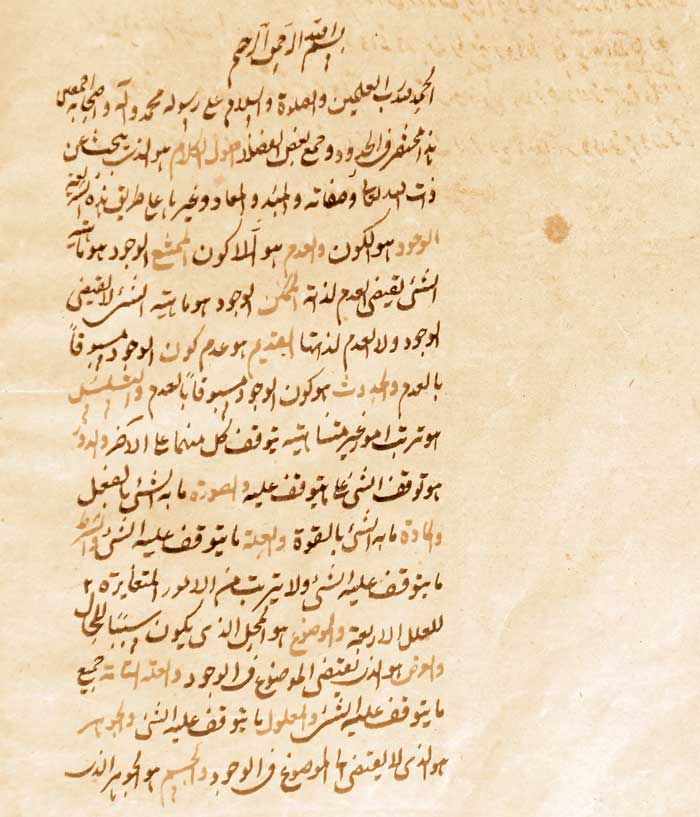 بسم الله الرحمن الرحيم
الحمد لله رب العلمين والصلوة والسلام على رسوله محمد وآله واصحابه اجمعين
هذا مختصر فى الحدود وجمع لبعض الفضلا اصول الكلام هو الذى يبحث عن
ذات الله تعالى وصفاته والمبدء والمعاد وغيرها على طريق هذه الشريعة
الوجود هو الكون والعدم هو اللا كون الممتنع الوجود هو ماهية
الشئ يقتضى العدم لذاته الممكن الوجود هو ماهية الشئ لا يقتضى
الوجود ولا العدم لذاتها القديم هو عدم كون الوجود مسبوقاً
بالعدم والحدوث هو كون الوجود مسبوقاً بالعدم والتسلسل
هو ترتب امور غير متناهية يتوقف كل منهما على الآخر والدور
هو توقف الشئ على ما يتوقف عليه والصورة ما به الشئ بالفعل
والمادة ما به الشئ بالقوة والعلة ما يتوقف عليه الشئ والشرط
ما يتوقف عليه الشئ ولا يترتب من الامور المتغايرة
للعلل الاربعة والموضوع هو المحل الذى يكون سبباً للحال
والعرض هو الذى يقتضى الموضوع فى الوجود والعلة التامة جميع
ما يتوقف عليه الشئ والمعلول ما يتوقف عليه الشئ والجوهر
هو الذى لا يقتضى الموضوع فى الوجود والجسم هو الجوهر الذى